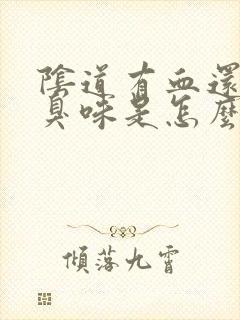 陰道有血還
臭味是怎麼
傾落九霄